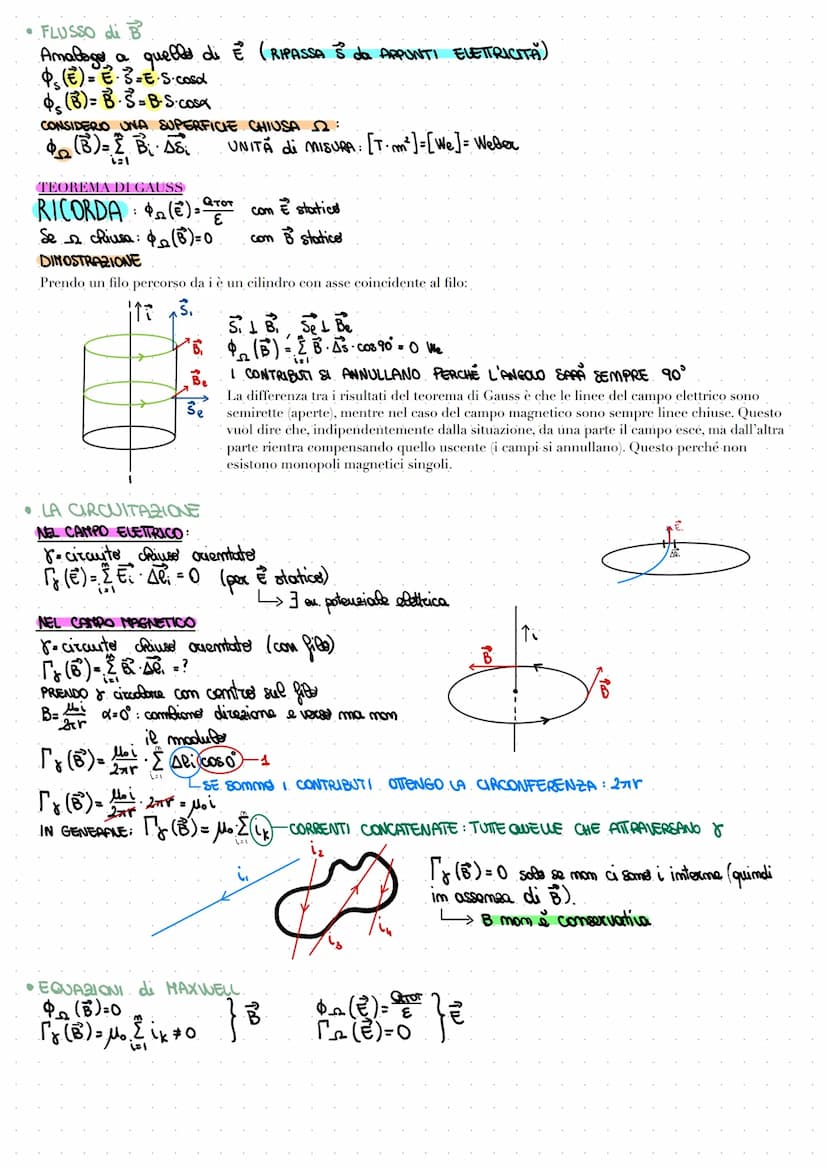 • FLUSSO di B⃗
Analogo a quello di E⃗ (RIPASSA S⃗ da APPUNTI ELETTRICITÀ)
ϕₛ(E⃗) = E⃗ · S⃗ = E · S · cosα
ϕₛ(B⃗) = B⃗ · S⃗ = B · S · cosα
CONSIDERO UNA SUPERFICIE CHIUSA Ω:
ϕ_Ω(B⃗) = Σ_{i=1}^{n} B⃗ᵢ · ΔS⃗ᵢ UNITÀ di MISURA: [T·m²]=[We]= Weber
TEOREMA DI GAUSS
RICORDA: ϕ_Ω(E⃗) = Q_TOT/ε con E⃗ statico
Se Ω chiusa: ϕ_Ω(B⃗)=0 con B⃗ statico
DIMOSTRAZIONE
Prendo un filo percorso da i è un cilindro con asse coincidente al filo:
i⃗
S⃗₁
B⃗₁
B⃗e
S⃗e
S⃗₁ ⊥ B⃗₁, S⃗e ⊥ B⃗e
ϕ_Ω(B⃗) = Σ_{i=1}^{n} B⃗ · ΔS⃗ · cos90° = 0 We
I CONTRIBUTI SI ANNULLANO PERCHÉ L'ANGOLO SARÀ SEMPRE 90°
La differenza tra i risultati del teorema di Gauss è che le linee del campo elettrico sono
semirette (aperte), mentre nel caso del campo magnetico sono sempre linee chiuse. Questo
vuol dire che, indipendentemente dalla situazione, da una parte il campo esce, ma dall'altra
parte rientra compensando quello uscente (i campi si annullano). Questo perché non
esistono monopoli magnetici singoli.
• LA CIRCUITAZIONE
NEL CAMPO ELETTRICO:
γ=circuito chiuso orientato
Γ_γ(E⃗) = Σ_{i=1}^{n} E⃗ᵢ · Δl⃗ᵢ = 0 (per E⃗ statico)
↳ ∃ en. potenziale elettrica
E⃗
NEL CAMPO MAGNETICO
γ=circuito chiuso orientato (con filo)
Γ_γ(B⃗) = Σ_{i=1}^{n} B⃗ᵢ · Δl⃗ᵢ = ?
PRENDO γ circolare con centro sul filo
B = μ₀i/2πr α=0°: cambiano direzione e verso ma non
il modulo
i
B⃗
B⃗
Γ_γ(B⃗) = μ₀i/2πr · Σ_{i=1}^{n} Δlᵢ cos0° — 1
SE SOMMO I CONTRIBUTI OTTENGO LA CIRCONFERENZA: 2πr
Γ_γ(B⃗) = μ₀i/2πr · 2πr = μ₀i
IN GENERALE: Γ_γ(B⃗) = μ₀ Σ_{i=1}^{n} i_k — CORRENTI CONCATENATE: TUTTE QUELLE CHE ATTRAVERSANO γ
i₁
i₂
i₃
i₄
Γ_γ(B⃗)=0 solo se non ci sono i interne (quindi
in assenza di B⃗).
↳ B non è conservativo
• EQUAZIONI di MAXWELL
ϕ_Ω(B⃗)=0
Γ_γ(B⃗) = μ₀ Σ_{i=1}^{n} i_k ≠ 0 } B⃗
ϕ_Ω(E⃗) = Q_TOT/ε
Γ_Ω(E⃗)=0 } E⃗